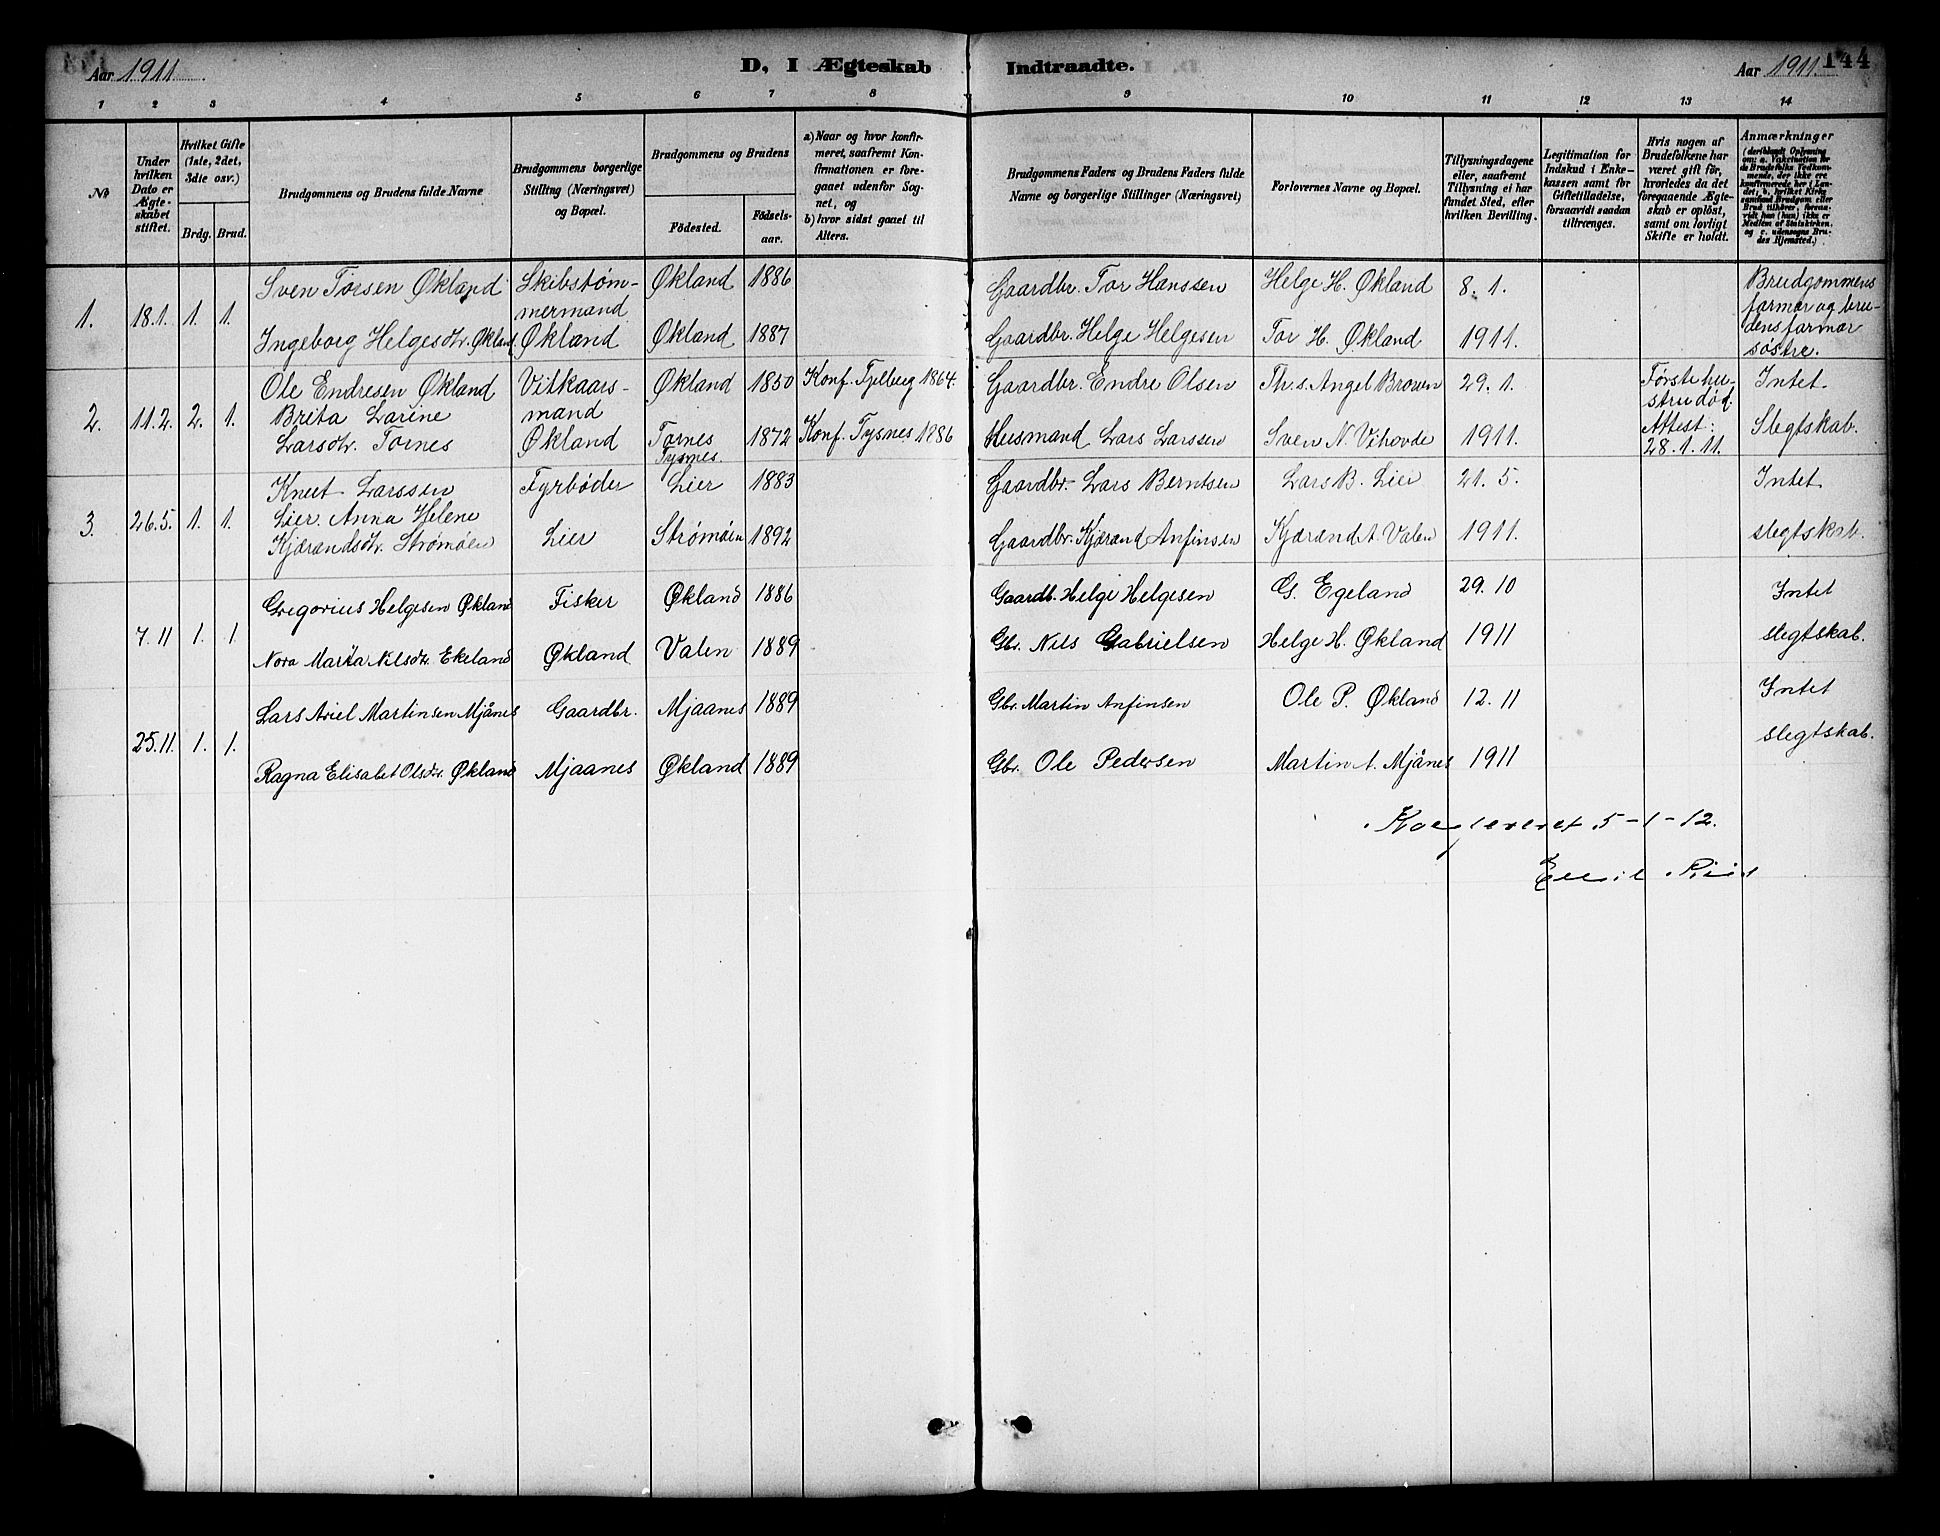 Aar 1911.
D, I Ægteskab Indtraadte.
Aar 1911. 144
1 2 3 4 5 6 7 8 9 10 11 12 13 14
No
Under hvilken Dato er Ægteskabet stiftet.
Hvilket Gifte (1ste, 2det, 3die osv.)
Brdg. Brud.
Brudgommens og Brudens fulde Navne
Brudgommens borgerlige Stilling (Næringsvei) og Bopæl.
Brudgommens og Brudens
Fødested. Fødselsaar.
a) Naar og hvor konfirmeret, saafremt Konfirmationen er foregaaet udenfor Sognet, og
b) hvor sidst gaaet til Alters.
Brudgommens Faders og Brudens Faders fulde Navne og borgerlige Stillinger (Næringsvei)
Forlovernes Navne og Bopæl.
Tillysningsdagene eller, saafremt Tillysning ei har fundet Sted, efter hvilken Bevilling.
Legitimation for Indskud i Enkekassen samt for Giftetilladelse, forsaavidt saadan tiltrænges.
Hvis nogen af Brudefolkene har været gift før, hvorledes da det foregaaende Ægteskab er opløst, samt om lovligt Skifte er holdt.
Anmærkninger (deriblandt Oplysning om: a. Vakcination for de Brudefolks Vedkommende, der ikke ere konfirmerede her i Landet; b. hvilket Kirkesamfund Brudgom eller Brud tilhører, forsaavidt han (hun) ikke er Medlem af Statskirken, og c. udensogns Brudes Hjemsted.)
1. 18.1. 1. 1.
Sven Torsen Økland Skibstømmermand Økland 1886 Gaardbr. Tor Hanssen Helge H. Økland 8.1. Brudgommens farmor og brudens farmor søstre.
Ingeborg Helgesdtr. Økland Økland Økland 1887 Gaardbr. Helge Helgesen Tor H. Økland 1911.
2. 11.2. 2. 1.
Ole Endresen Økland Vitkaarsmand Økland 1850 Konf. Fjelberg 1864. Gaardbr. Endre Olsen Th. s. Angel Brown 29.1. Første hustru død. Attest: 28.1.11. Intet Slegtskab.
Brita Larine Larsdtr. Tornes Økland Tornes Tysnes 1872 Konf. Tysnes 1886 Husmand Lars Larssen Sven N. Vihovde 1911.
3. 26.5. 1. 1.
Knut Larssen Lier. Fyrbøder Lier 1883 Gaardbr. Lars Berntsen Lars B. Lier 21.5. Intet slegtskab.
Anna Helene Kjærandsdtr. Strømøen Lier Strømøen 1892 Gaardbr. Kjærand Anfinsen Kjærand A. Valen 1911.
7.11 1. 1.
Gregorius Helgesen Økland Fisker Økland 1886 Gaardb. Helge Helgesen G. Egeland 29.10 Intet slegtskab.
Nora Maria Nilsdtr. Ekeland Økland Valen 1889 Gbr. Nils Gabrielsen Helge H. Økland 1911
25.11. 1. 1.
Lars Ariel Martinsen Mjånes Gaardbr. Mjaanes 1889 Gbr. Martin Anfinsen Ole P. Økland 12.11 Intet slegtskab.
Ragna Elisabet Olsdtr. Økland Mjaanes Økland 1889 Gbr. Ole Pedersen Martin A. Mjånes 1911
5-1-12.